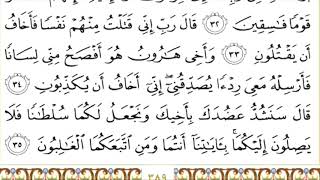 قَوْمًا فَٰسِقِينَ ٣٢ قَالَ رَبِّ إِنِّي قَتَلْتُ مِنْهُمْ نَفْسًا فَأَخَافُ
أَن يَقْتُلُونِ ٣٣ وَأَخِي هَٰرُونُ هُوَ أَفْصَحُ مِنِّي لِسَانًا
فَأَرْسِلْهُ مَعِيَ رِدْءًا يُصَدِّقُنِيٓ ۖ إِنِّيٓ أَخَافُ أَن يُكَذِّبُونِ ٣٤
قَالَ سَنَشُدُّ عَضُدَكَ بِأَخِيكَ وَنَجْعَلُ لَكُمَا سُلْطَٰنًا فَلَا
يَصِلُونَ إِلَيْكُمَا ۚ بِـَٔايَٰتِنَآ أَنتُمَا وَمَنِ ٱتَّبَعَكُمَا ٱلْغَٰلِبُونَ ٣٥
٣٨٩